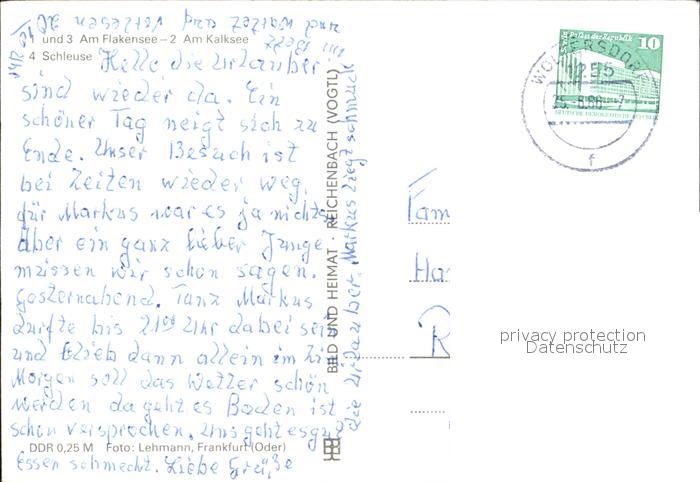 1 und 3 Am Flakensee – 2 Am Kalksee
4 Schleuse
Hallo die Urlauber
sind wieder da. Ein
schöner Tag neigt sich zu
Ende. Unser Besuch ist
bei Zeiten wieder weg,
für Markus war es ja nichts
Aber ein ganz lieber Junge
müssen wir schon sagen.
Gesternabend. Tanz Markus
durfte bis 21 Uhr dabei sein
und blieb dann allein im
Morgen soll das Wetter schön
werden da geht es Baden ist
schon versprochen. Uns geht es gut
Essen schmeckt. Liebe Grüße
die Urlauber. Markus liegt
DDR 0,25 M Foto: Lehmann, Frankfurt (Oder)
BILD UND HEIMAT · REICHENBACH (VOGTL)
WOLTERSDORF
1255
25.-8.86.-7
f
Palast der Republik
10
DEUTSCHE DEMOKRATISCHE REPUBLIK
Fam
Ha
R
privacy protection
Datenschutz